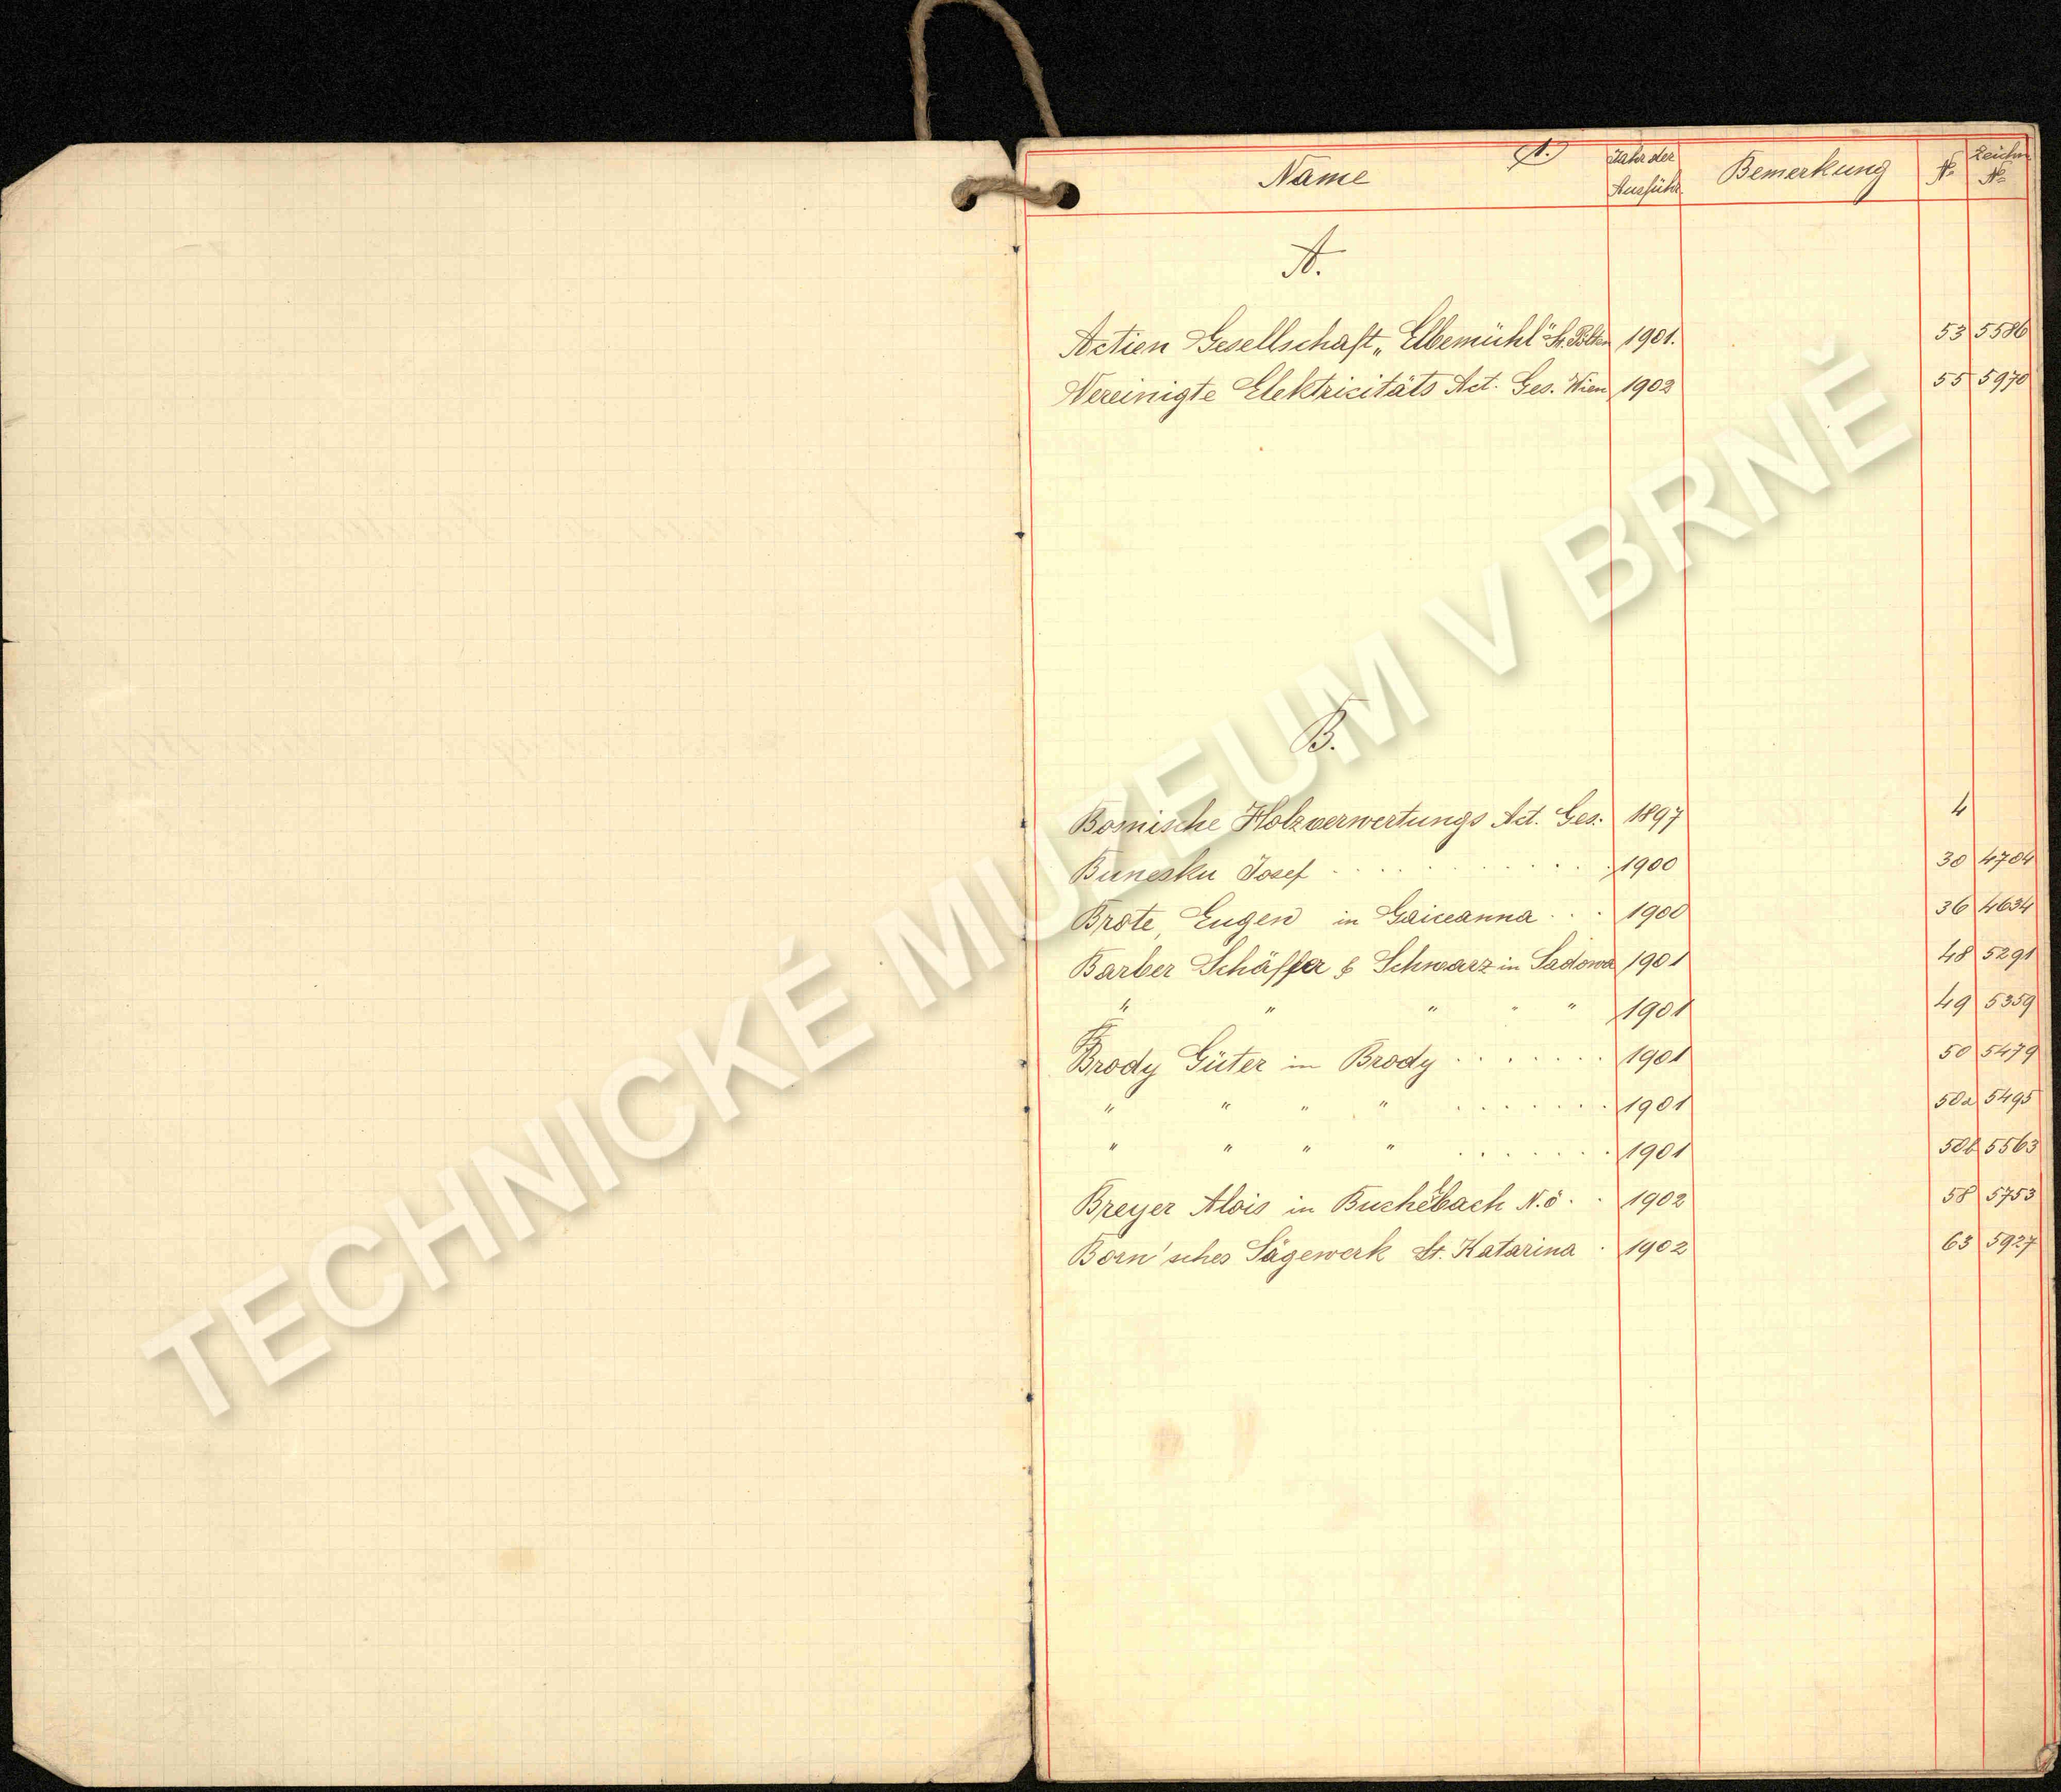 1.
Name Jahr der Ausführ. Bemerkung № Zeichn. №
A.
Actien Gesellschaft „Elbemühl" St. Pölten 1901. 53 5586
Vereinigte Elektricitäts Act. Ges. Wien 1902 55 5970
B.
Bosnische Holzverwertungs Act. Ges. 1897 4
Bunesku Josef . . . . . . . . 1900 30 4704
Brote, Eugen in Gaiceanna . . . 1900 36 4634
Barber Schäffer & Schwarz in Sadowa 1901 48 5291
" " " " " 1901 49 5359
Brody Güter in Brody . . . . . . . 1901 50 5479
" " " " . . . . . . . 1901 50a 5495
" " " " . . . . . . . 1901 50b 5563
Breyer Alois in N.ö. . 1902 58 5753
Born'sches Sägewerk St. Katarina . 1902 63 5927
TECHNICKÉ MUZEUM V BRNĚ